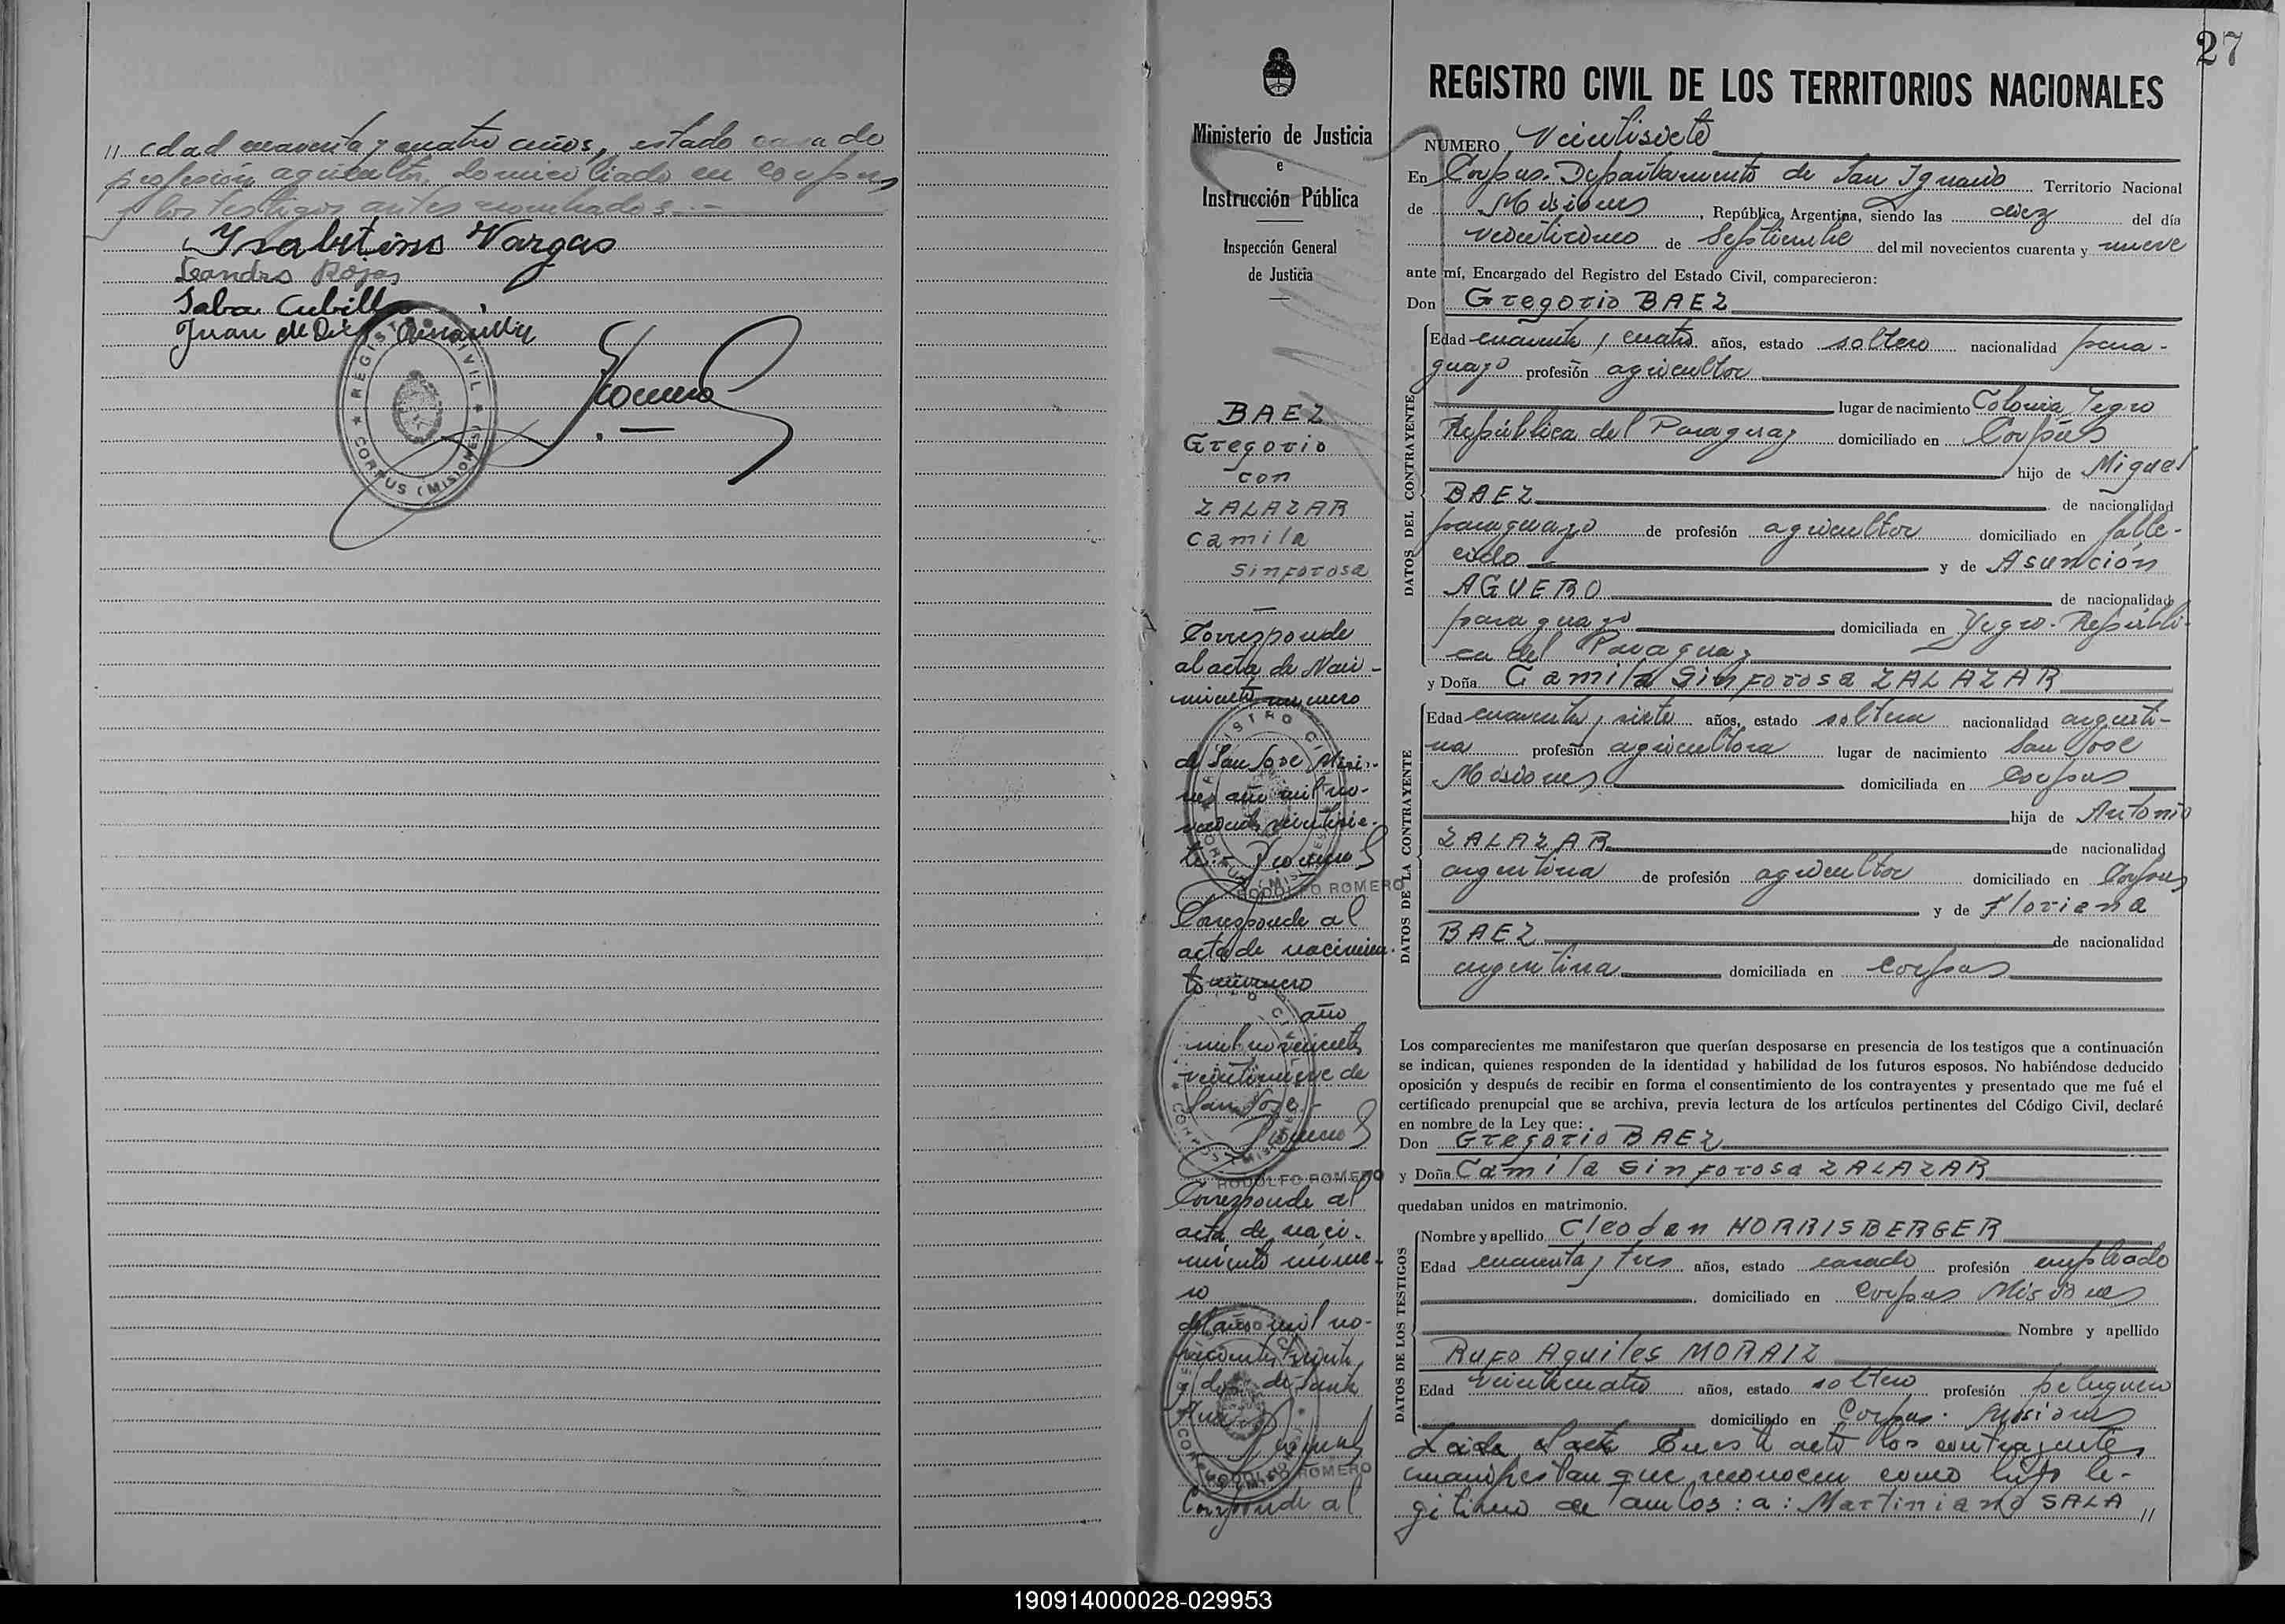 27
" edad cuarenta y cuatro años, estado casado
profesión agricultor, domiciliado en Corpus
y los testigos antes nombrados.-
Ysabelino Vargas
Leandro Rojas
Saba Cubilla
Juan de Dios
REGISTRO CIVIL
CORPUS (MISIONES)
Ministerio de Justicia
e
Instrucción Pública
Inspección General
de Justicia
BAEZ
Gregorio
con
ZALAZAR
Camila
Sinforosa
Corresponde
al acta de Naci-
miento número
de San José Misio-
nes año mil no-
vecientos veintisie-
te - Romero
RODOLFO ROMERO
Corresponde al
acta de nacimien-
to número
año
mil novecientos
veintinueve de
San José -
Romero
RODOLFO ROMERO
Corresponde al
acta de naci-
miento núme-
ro
del año mil no-
vecientos treinta
y dos de Santa
Ana
Romero
RODOLFO ROMERO
Corresponde al
REGISTRO CIVIL DE LOS TERRITORIOS NACIONALES
NUMERO Veintisiete
En Corpus. Departamento de San Ignacio Territorio Nacional
de Misiones, República Argentina, siendo las diez del día
veinticinco de Septiembre del mil novecientos cuarenta y nueve
ante mí, Encargado del Registro del Estado Civil, comparecieron:
Don Gregorio BAEZ
DATOS DEL CONTRAYENTE
Edad cuarenta y cuatro años, estado soltero nacionalidad para-
guayo profesión agricultor
lugar de nacimiento Colonia Yegro
República del Paraguay domiciliado en Corpus
hijo de Miguel
BAEZ de nacionalidad
paraguayo de profesión agricultor domiciliado en falle-
cido y de Asunción
AGUERO de nacionalidad
paraguayo domiciliada en Yegro. Repúbli-
ca del Paraguay
y Doña Camila Sinforosa ZALAZAR
DATOS DE LA CONTRAYENTE
Edad cuarenta y siete años, estado soltera nacionalidad argenti-
na profesión agricultora lugar de nacimiento San José
Misiones domiciliada en Corpus
hija de Antonio
ZALAZAR de nacionalidad
argentina de profesión agricultor domiciliado en Corpus
y de Floriena
BAEZ de nacionalidad
argentina domiciliada en Corpus
Los comparecientes me manifestaron que querían desposarse en presencia de los testigos que a continuación
se indican, quienes responden de la identidad y habilidad de los futuros esposos. No habiéndose deducido
oposición y después de recibir en forma el consentimiento de los contrayentes y presentado que me fué el
certificado prenupcial que se archiva, previa lectura de los artículos pertinentes del Código Civil, declaré
en nombre de la Ley que:
Don Gregorio BAEZ
y Doña Camila Sinforosa ZALAZAR
quedaban unidos en matrimonio.
DATOS DE LOS TESTIGOS
Nombre y apellido Cleodan HORRISBERGER
Edad cuarenta y tres años, estado casado profesión empleado
domiciliado en Corpus Misiones
Nombre y apellido
Rufo Aquiles MORAIZ
Edad veinticuatro años, estado soltero profesión peluquero
domiciliado en Corpus. Misiones
Leida el acta En este acto los contrayentes
manifiestan que reconocen como hijo le-
gitimo de ambos: a: Martiniano SALA "
190914000028-029953